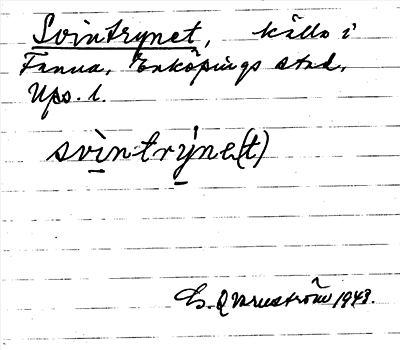 Svintrynet, källa i
Fanna, Enköpings stad,
Ups. l.
svìntrýne(t)
E. Qvarnström 1943.